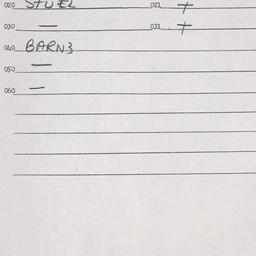 020 STUEL 021 +
030 — 031 +
040 BARN3
050 —
060 —